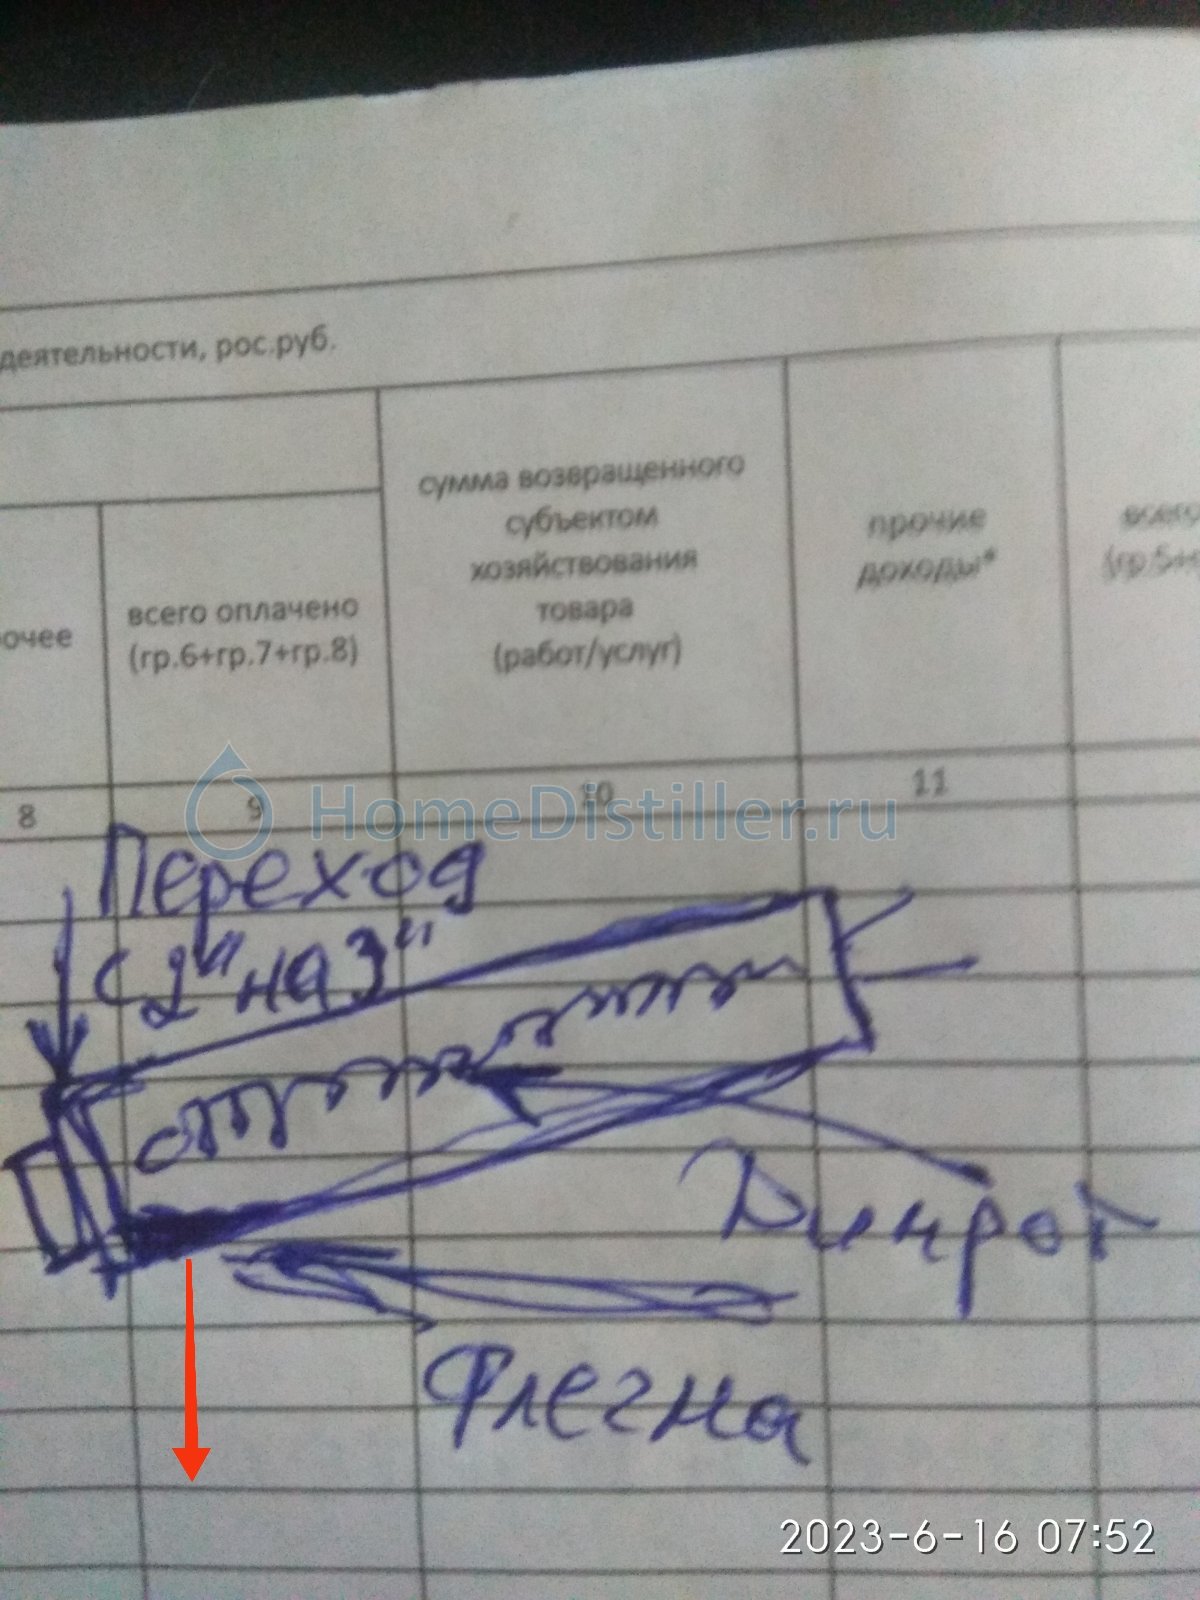 деятельности, рос.руб.
очее
всего оплачено
(гр.6+гр.7+гр.8)
сумма возвращенного
субъектом
хозяйствования
товара
(работ/услуг)
прочие
доходы*
всего
(гр.5+
8
9
10
11
HomeDistiller.ru
Переход
с 2" на 3"
Димрот
Флегма
2023-6-16 07:52